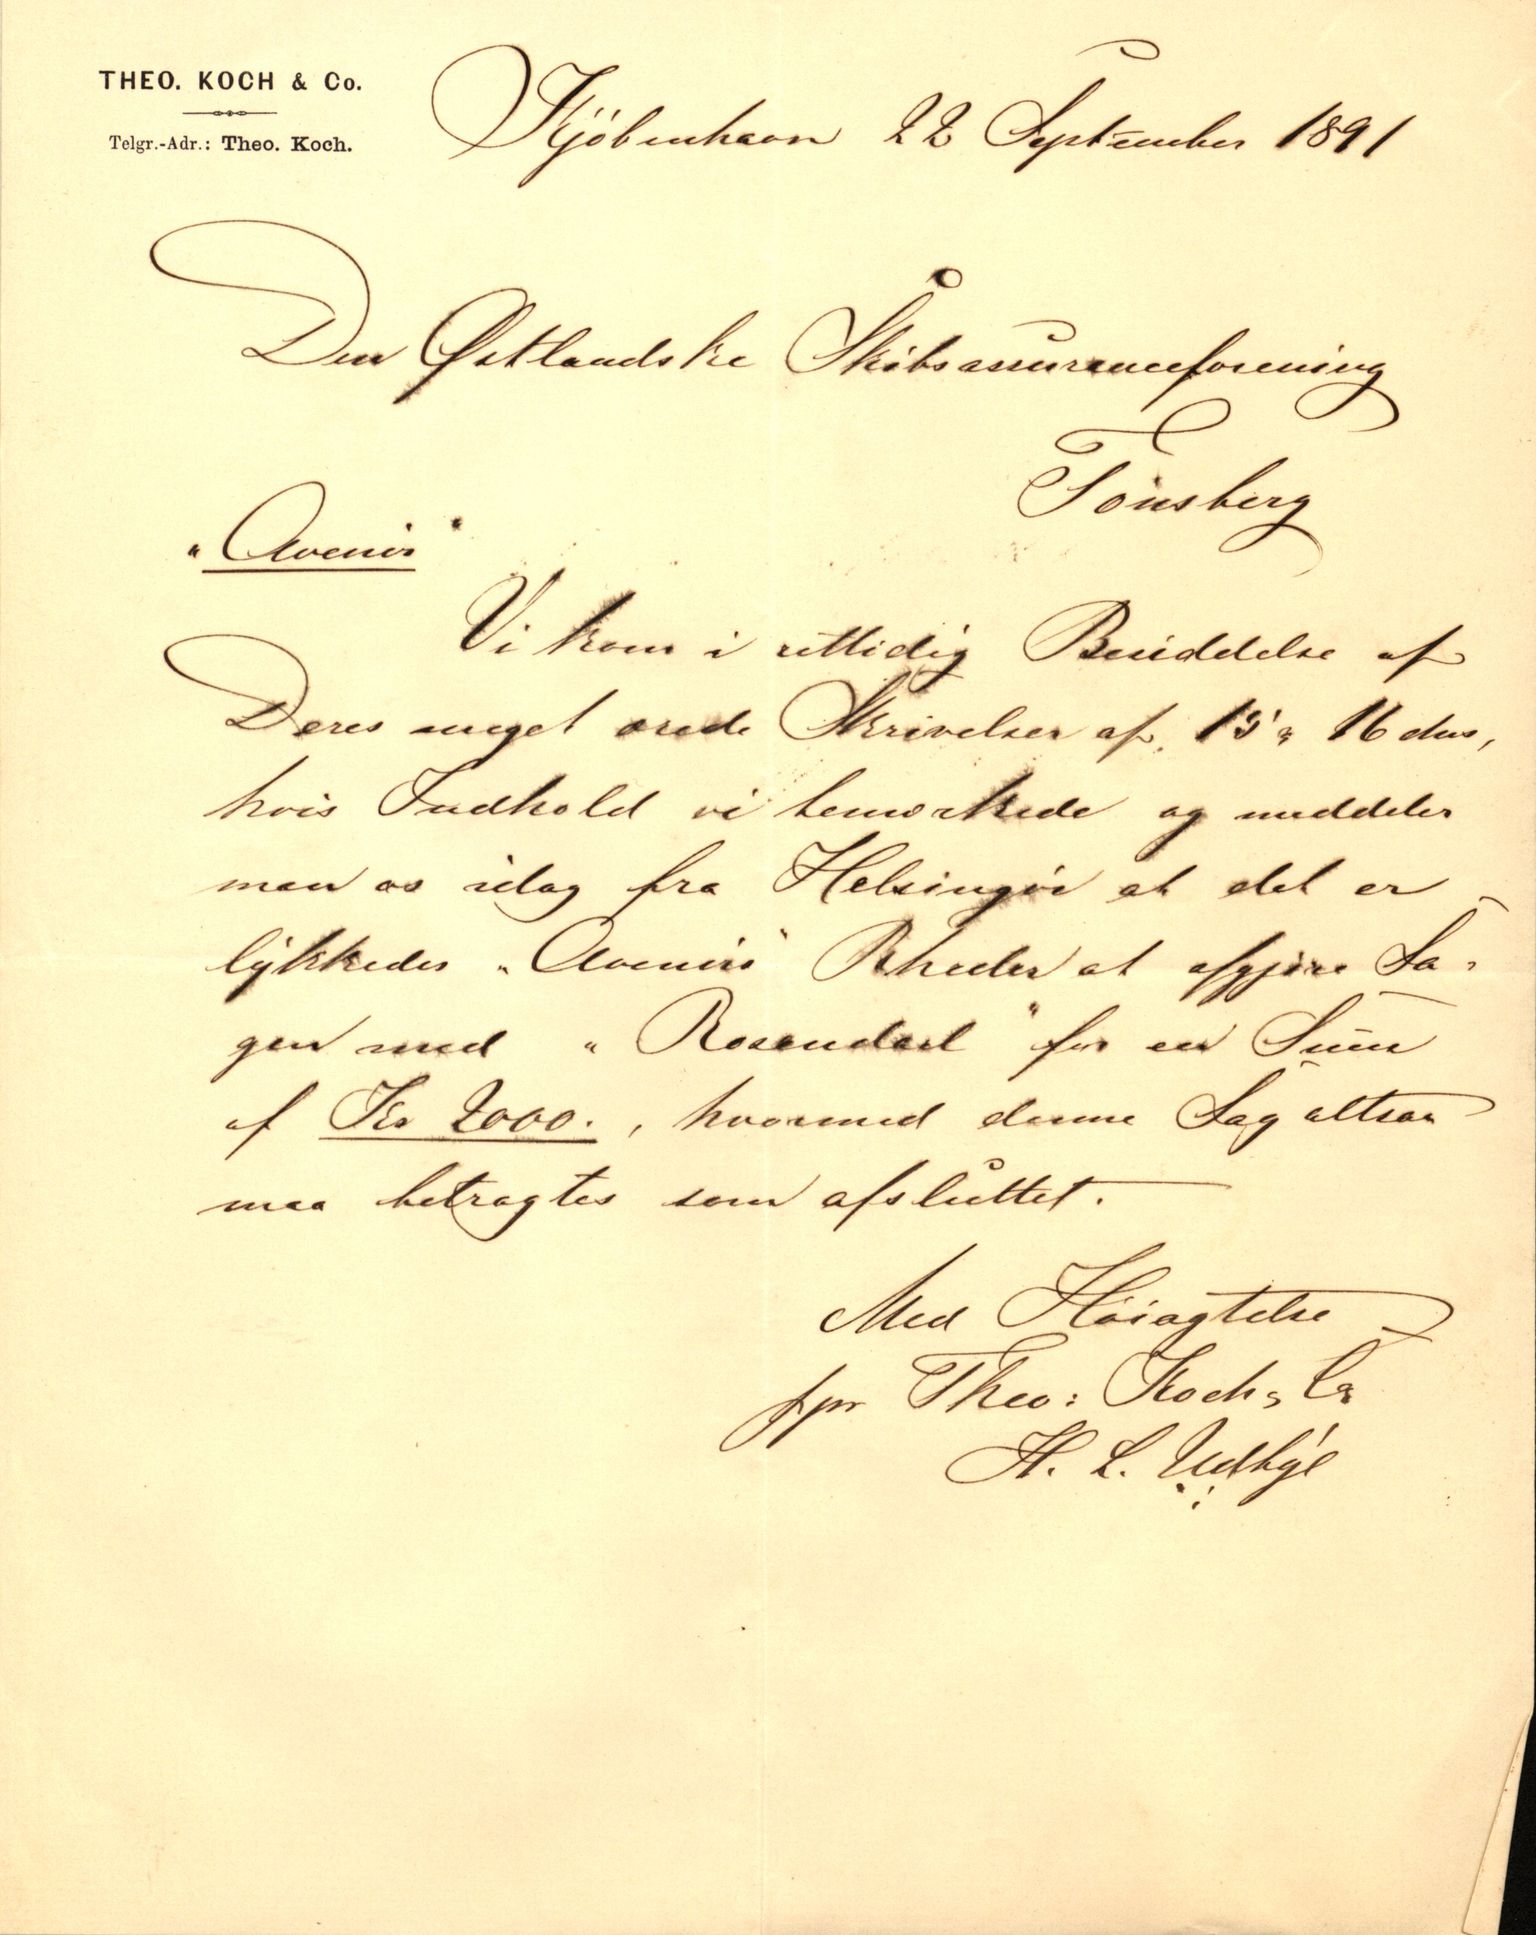 THEO. KOCH & Co.
Telgr.-Adr.: Theo. Koch.
Kjöbenhavn 22 September 1891
Den Østlandske Skibsassuranceforening
Tönsberg
"Avenir"
Vi kom i rettidig Besiddelse af
Deres meget ærede Skrivelser af 15 & 16 ds,
hvis Indhold vi bemærkede og meddeler
man os idag fra Helsingör at det er
lykkedes "Avenirs" Rheder at afgjöre Sa-
gen med "Rosendael" for en Sum
af Kr 2000. , hvormed denne Sag altsaa
maa betragtes som afsluttet.
Med Höiagtelse
ppr Theo: Koch & Co
H. L.